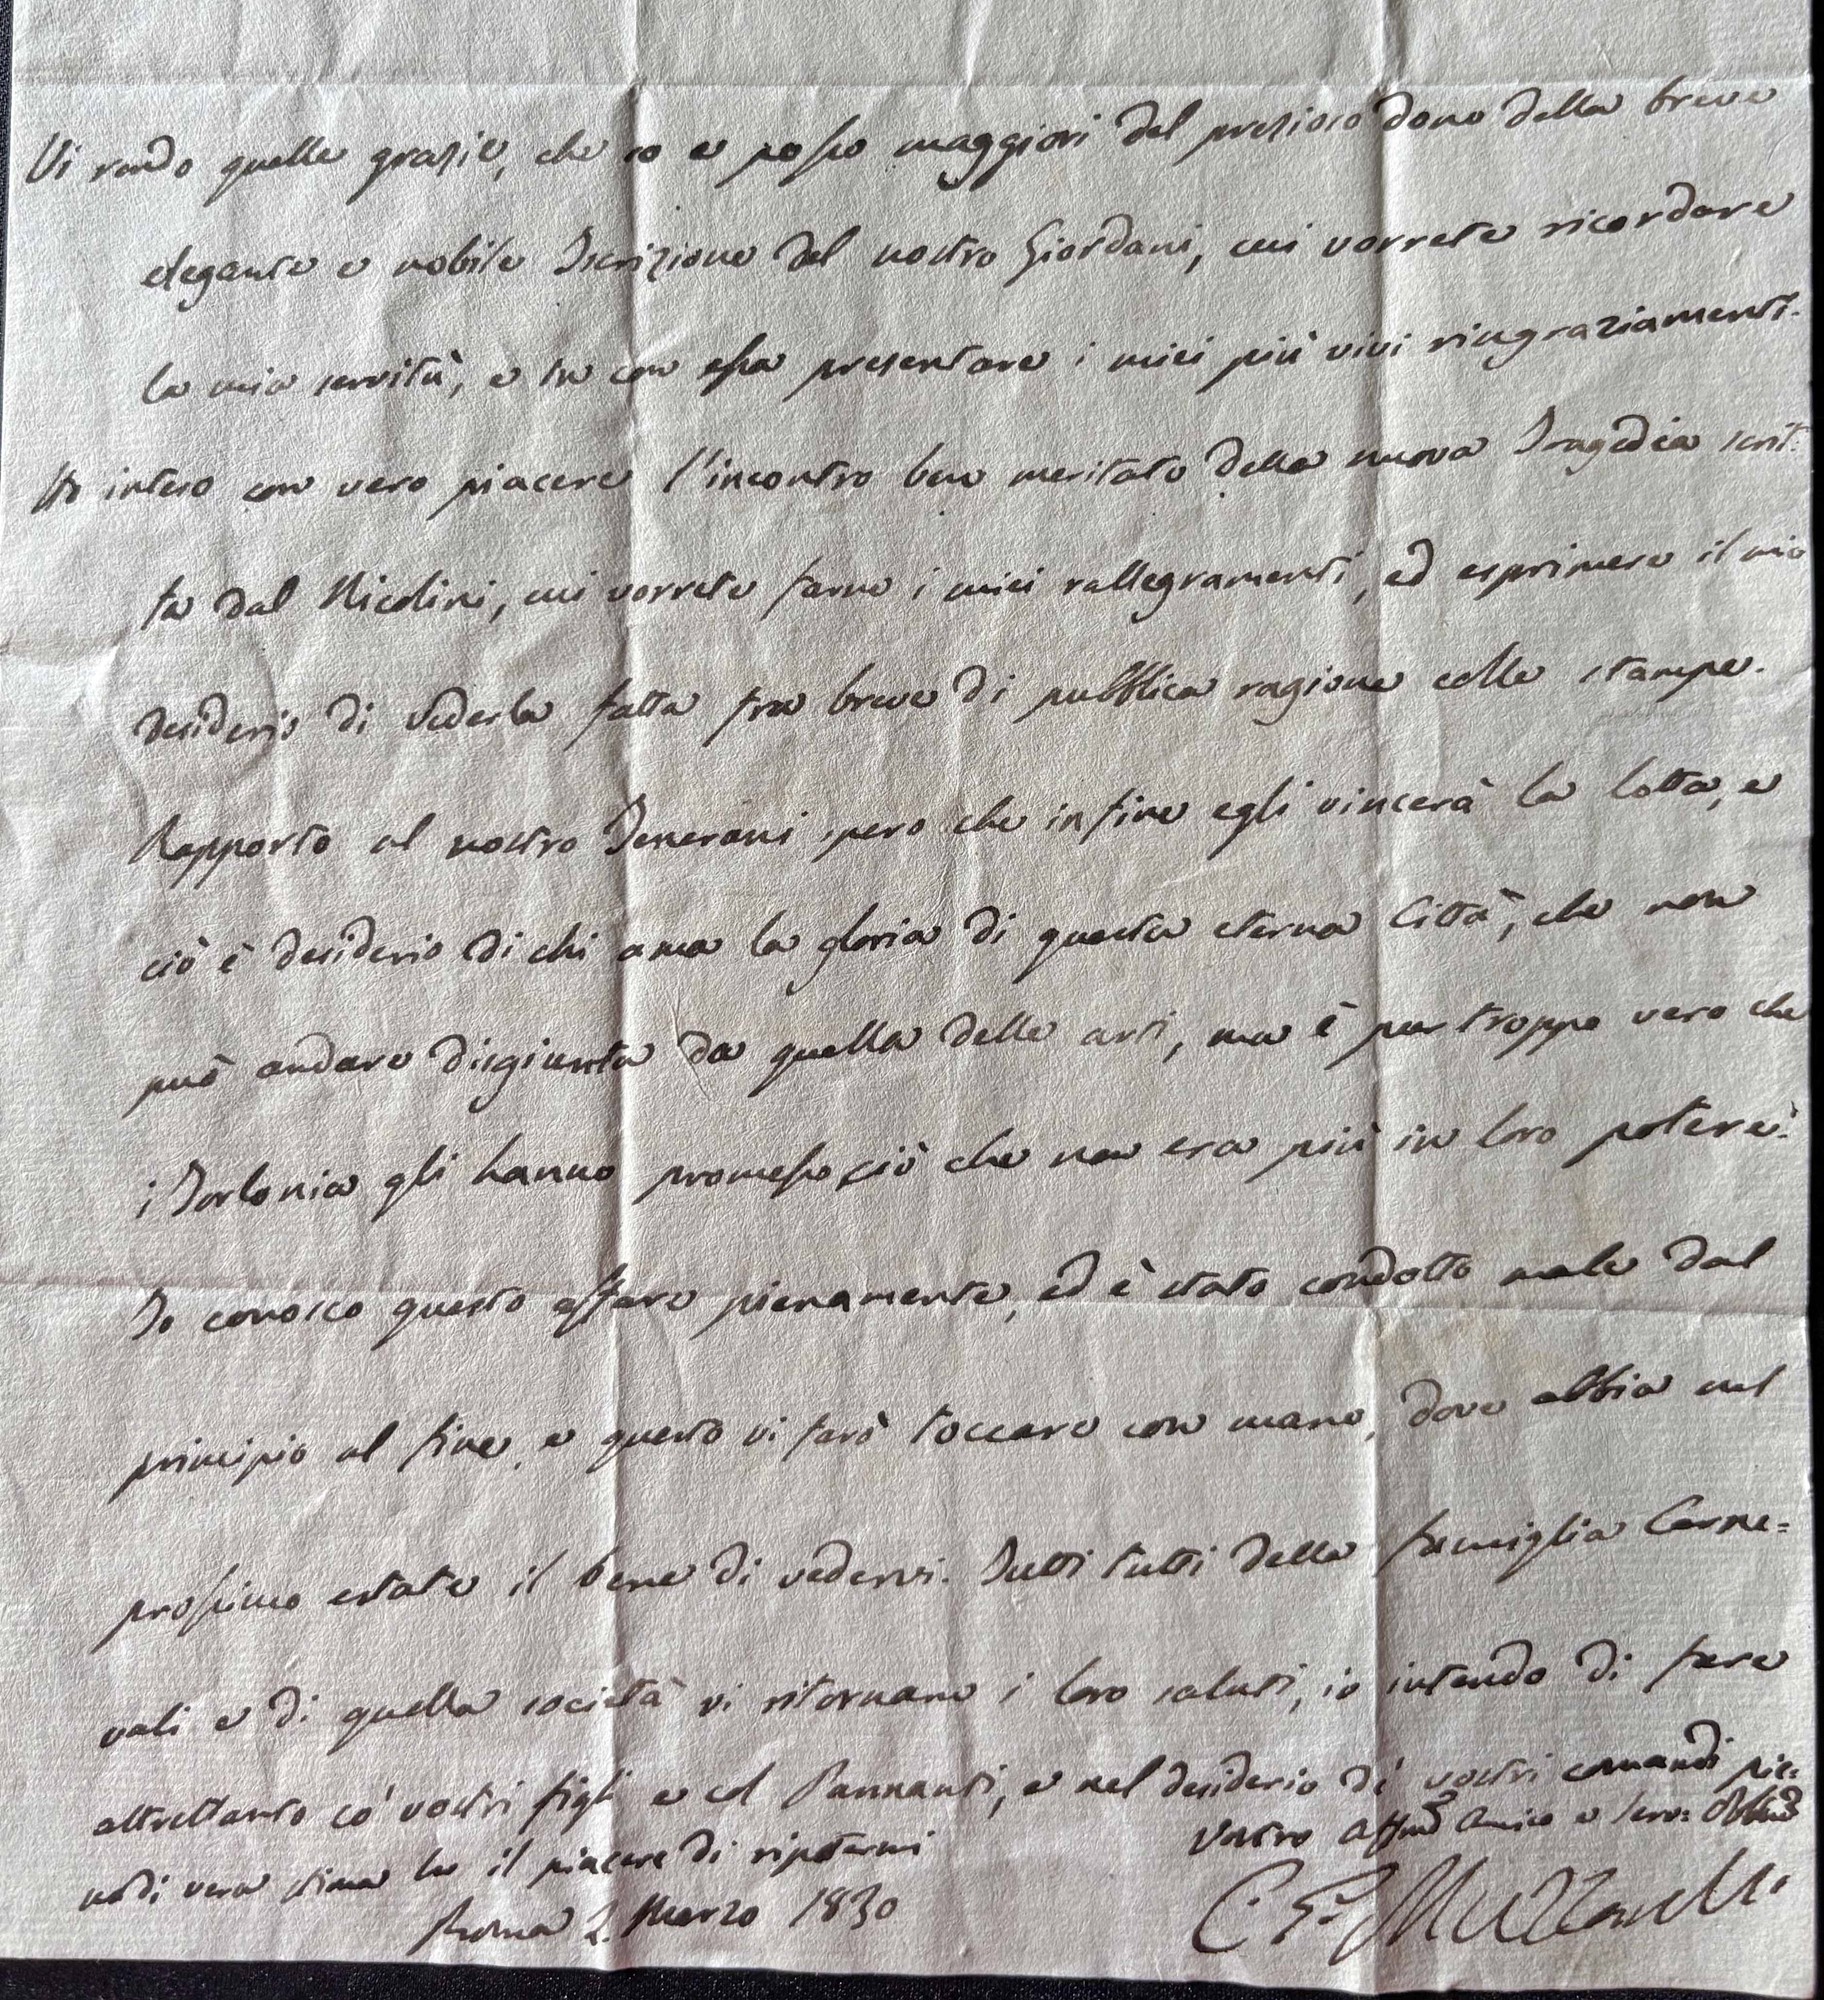 Vi rendo quelle grazie, che so e posso maggiori del prezioso dono della breve
elegante e nobile Iscrizione del nostro Giordani, cui vorrete ricordare
la mia servitù, e con essa presentare i miei più vivi ringraziamenti.
Ho inteso con vero piacere l'incontro ben meritato della nuova Tragedia scrit:
ta dal Nicolini, cui vorrete farne i miei rallegramenti, ed esprimere il mio
desiderio di vederla fatta fra breve di pubblica ragione colle stampe.
Rapporto al nostro Tenerani spero che infine egli vincerà la lotta, e
ciò è desiderio di chi ama la gloria di questa eterna Città, che non
può andare disgiunta da quella delle arti, ma è pur troppo vero che
i Torlonia gli hanno promesso ciò che non era più in loro potere.
Io conosco questo affare pienamente, ed è stato condotto male dal
principio al fine, e questo vi farò toccare con mano, dove abbia nel
prossimo estate il bene di vedervi. Tutti tutti della famiglia Carne=
vali e di quella società vi ritornano i loro saluti, io intendo di fare
altrettanto co' vostri figli e col Pannanti, e nel desiderio de' vostri comandi pie:
no di vera stima ho il piacere di ripetermi
Vostro Affmo Amico e Serv: Obblmo
Roma 2. Marzo 1830
C. E. Muzzarelli